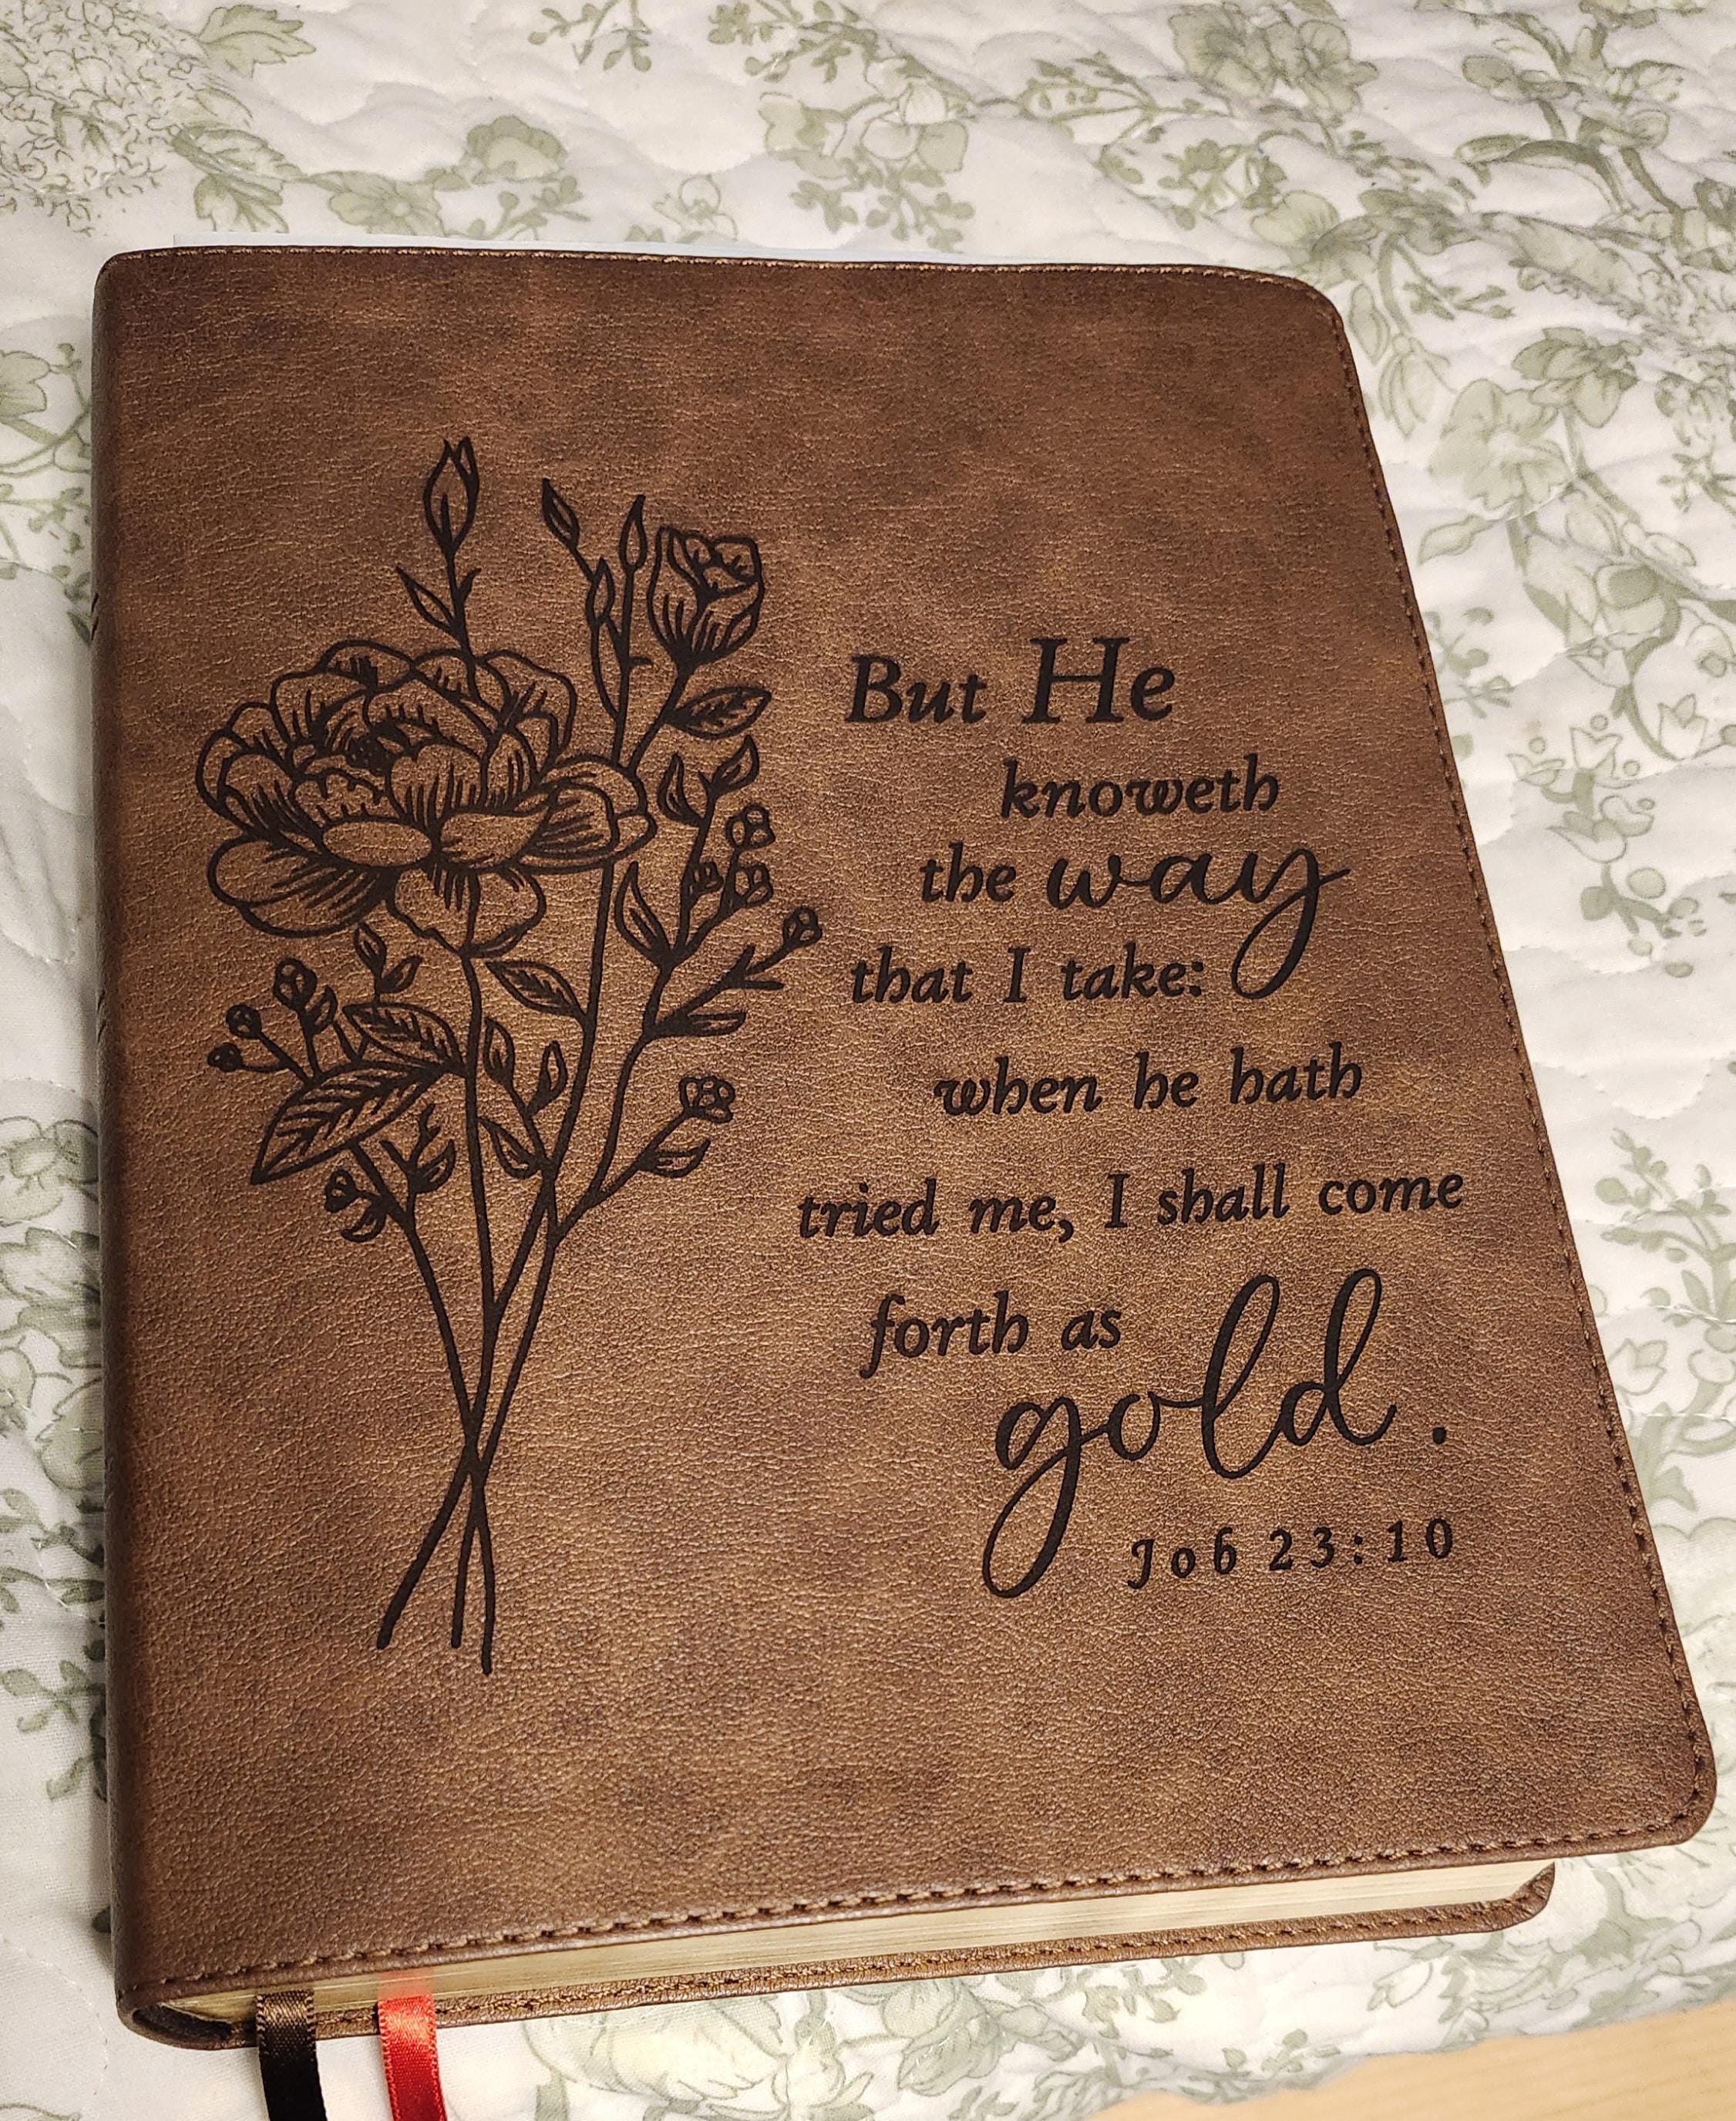 But He
knoweth
the way
that I take:
when he hath
tried me, I shall come
forth as
gold.
Job 23:10